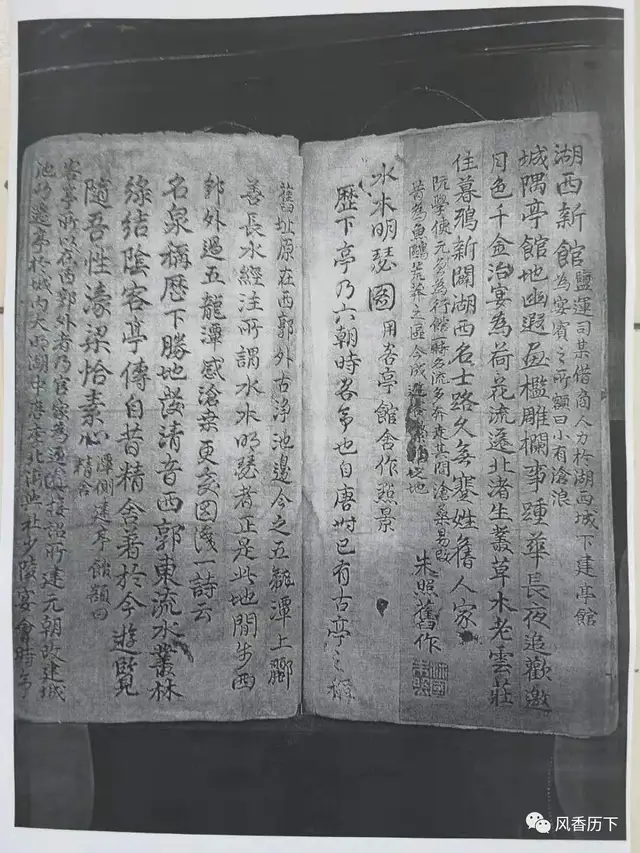 湖西新館
鹽運司某借商人力於湖西城下建亭館
為宴賓之所額曰小有滄浪
城隅亭館地幽遐畫檻雕欄事踵華長夜追歡邀
月色千金治宴為荷花流逸北渚生叢草木老雲莊
住暮鴉新闢湖西名士路久無雙姓舊人家
阮學使元名為行館時名流多奔走其間滄桑易改
昔為魚鷗荒莽之區今成遊地
朱照舊作
水木明瑟圖
用客亭館舍作照景
歷下亭乃六朝時客亭也自唐时已有古亭之稱
舊址原在西郭外古浄池邊今之五龍潭上酈
善長水經注所謂水木明瑟者正是此地閒步西
郭外過五龍潭感滄桑更交因淺一詩云
名泉稱歷下勝地發清音西郭東流水叢林
綠結陰客亭傳自昔精舍著於今遊覽
隨吾性濠梁恰素心
潭側建亭館額曰
精舍
客亭所以在西郭外者乃官家為迎接詔所建元朝改建城
池此遷亭於城内大明湖中李北海與杜少陵宴會時
风香历下